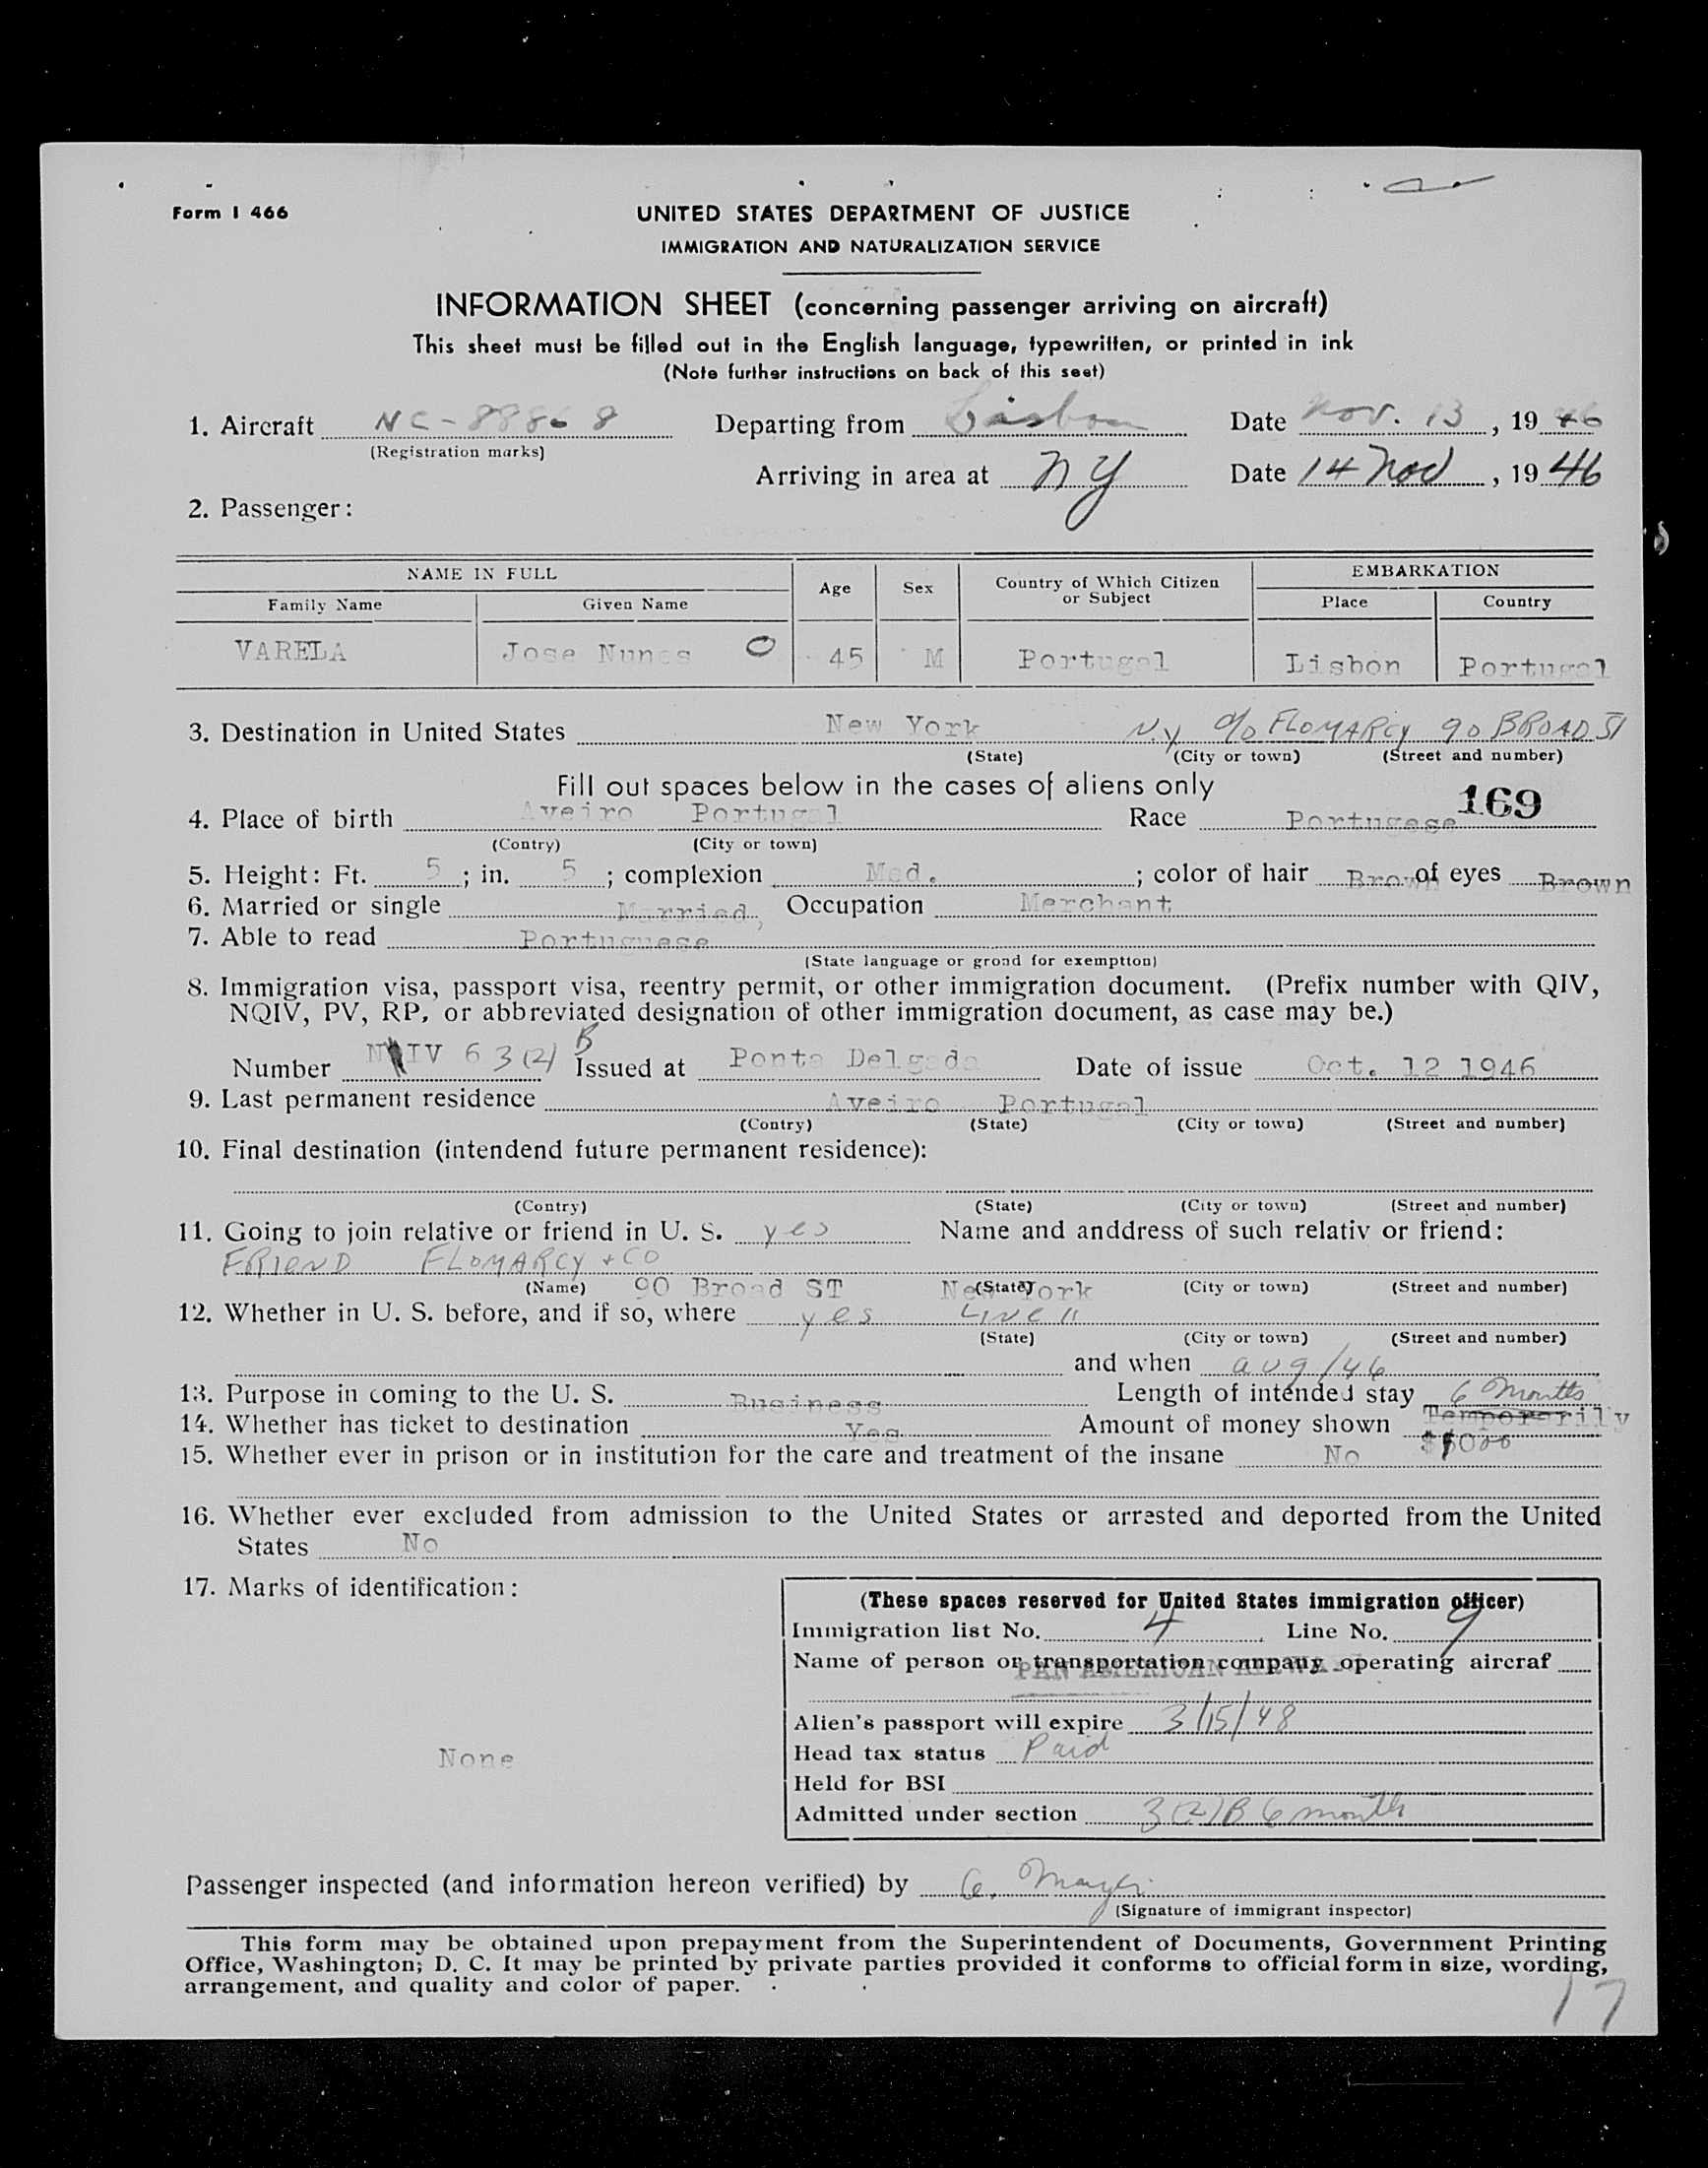 Form I 466
UNITED STATES DEPARTMENT OF JUSTICE
IMMIGRATION AND NATURALIZATION SERVICE
INFORMATION SHEET (concerning passenger arriving on aircraft)
This sheet must be filled out in the English language, typewritten, or printed in ink
(Note further instructions on back of this seet)
1. Aircraft NC-88868 Departing from Lisbon Date Nov. 13, 1946
(Registration marks)
Arriving in area at NY Date 14 Nov, 1946
2. Passenger:
NAME IN FULL Age Sex Country of Which Citizen or Subject EMBARKATION
Family Name Given Name Place Country
VARELA Jose Nunes O 45 M Portugal Lisbon Portugal
3. Destination in United States New York N.Y c/o FLOMARCY 90 BROAD ST
(State) (City or town) (Street and number)
Fill out spaces below in the cases of aliens only
4. Place of birth Aveiro Portugal Race Portugese 169
(Contry) (City or town)
5. Height: Ft. 5; in. 5; complexion Med.; color of hair Brown of eyes Brown
6. Married or single Married, Occupation Merchant
7. Able to read Portuguese
(State language or grond for exemptton)
8. Immigration visa, passport visa, reentry permit, or other immigration document. (Prefix number with QIV,
NQIV, PV, RP, or abbreviated designation of other immigration document, as case may be.)
Number IV 6 3(2) B Issued at Ponta Delgada Date of issue Oct. 12 1946
9. Last permanent residence Aveiro Portugal
(Contry) (State) (City or town) (Street and number)
10. Final destination (intendend future permanent residence):
(Contry) (State) (City or town) (Street and number)
11. Going to join relative or friend in U. S. yes Name and anddress of such relativ or friend:
FRIEND FLOMARCY + CO
(Name) 90 Broad ST New York (State) (City or town) (Street and number)
12. Whether in U. S. before, and if so, where yes
(State) (City or town) (Street and number)
and when aug/46
13. Purpose in coming to the U. S. Business Length of intended stay 6 months
14. Whether has ticket to destination Yes Amount of money shown Temporarily
15. Whether ever in prison or in institution for the care and treatment of the insane No
16. Whether ever excluded from admission to the United States or arrested and deported from the United
States No
17. Marks of identification:
None
(These spaces reserved for United States immigration officer)
Immigration list No. 4 Line No. 9
Name of person or transportation company operating aircraf
PAN AMERICAN AIRWAYS
Alien's passport will expire 3/15/48
Head tax status Paid
Held for BSI
Admitted under section 3(2)B 6 month
Passenger inspected (and information hereon verified) by
(Signature of immigrant inspector)
This form may be obtained upon prepayment from the Superintendent of Documents, Government Printing
Office, Washington; D. C. It may be printed by private parties provided it conforms to official form in size, wording,
arrangement, and quality and color of paper.
17